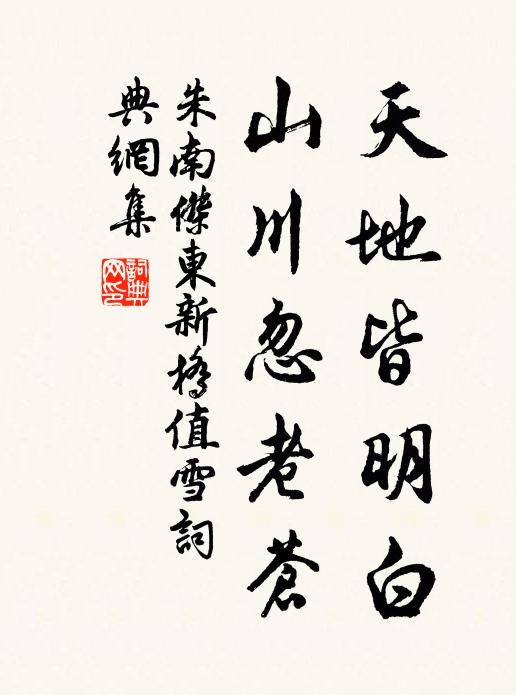 天地皆明白
山川忽老蒼
朱南傑東新橋值雪詞
典網集
詞典
网印